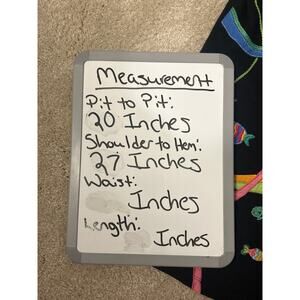 Measurement
Pit to Pit:
20 Inches
Shoulder to Hem:
27 Inches
Waist:
Inches
Length:
Inches